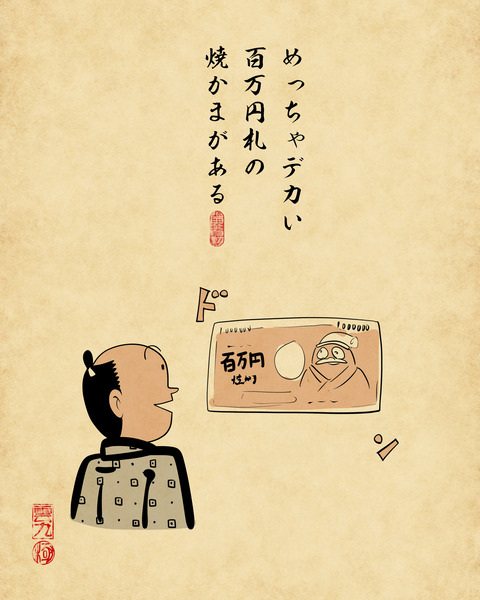 めっちゃデカい
百万円札の
焼かまがある
ド
1000000
百万円
ン